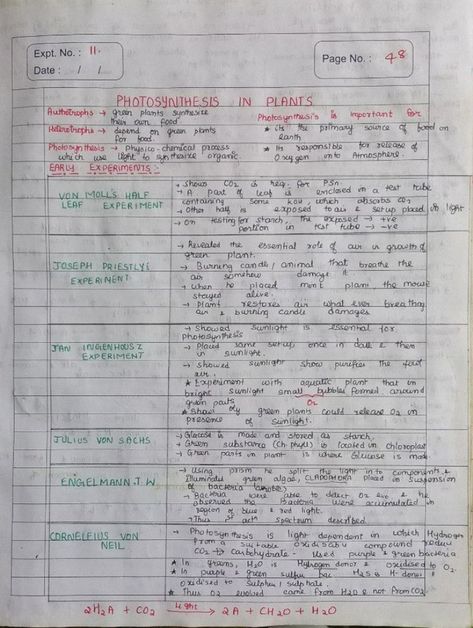 Expt. No. : 11.
Date : / /
Page No. : 48
PHOTOSYNTHESIS IN PLANTS
Authotrophs → green plants synthesize
their own food
Heterotrophs → depend on green plants
for food
Photosynthesis → Physico-chemical process
which use light to synthesize organic.
Photosynthesis is important for
* its the primary source of food on
earth
* Its responsible for release of
Oxygen into Atmosphere.
EARLY EXPERIMENTS :-
VON MOLL'S HALF
LEAF EXPERIMENT
→ Shows CO2 is req. for PSn.
→ A part of leaf is enclosed in a test tube
containing some KOH which absorbs CO2
→ Other half is exposed to air & setup placed in light
→ On testing for starch, the exposed → +ve
portion in test tube → -ve
JOSEPH PRIESTLY
EXPERIMENT
→ Revealed the essential role of air in growth of
green plant.
→ Burning candle / animal that breathe the
air somehow damage it
→ when he placed mint plant the mouse
stayed alive.
→ Plant restores air what ever breathing
air & burning candle damages
JAN INGENHOUSZ
EXPERIMENT
→ Showed sunlight is essential for
Photosynthesis
→ Placed same setup once in dark & then
in sunlight.
→ Showed sunlight purifies the foul
air.
* Experiment with aquatic plant that in
bright sunlight small bubbles formed around
green parts
* Show only green plants could release O2 in
presence of sunlight.
JULIUS VON SACHS
→ Glucose is made and stored as starch.
→ Green substance (Ch phyll) is located in chloroplast
→ Green parts in plant is where Glucose is made
ENGELMANN J.W
→ Using prism he split the light into components &
Illuminated green algae, CLADOPHORA placed in suspension
of bacteria
→ Bacteria were able to detect O2 & he
observed the Bacteria were accumulated in
region of blue & red light.
→ Thus 1st spectrum described
CORNELEIUS VON
NEIL
→ Photosynthesis is light dependent in which Hydrogen
from a suitable oxidisable compound
CO2 → Carbohydrate. Used purple & green bacteria
* In H2O is Hydrogen donor & oxidised to O2.
* In purple & green sulphur bac H2S is H-donor &
oxidised to Sulphur / sulphate.
* Thus O2 evolved came from H2O & not from CO2
2H2A + CO2 Light → 2A + CH2O + H2O